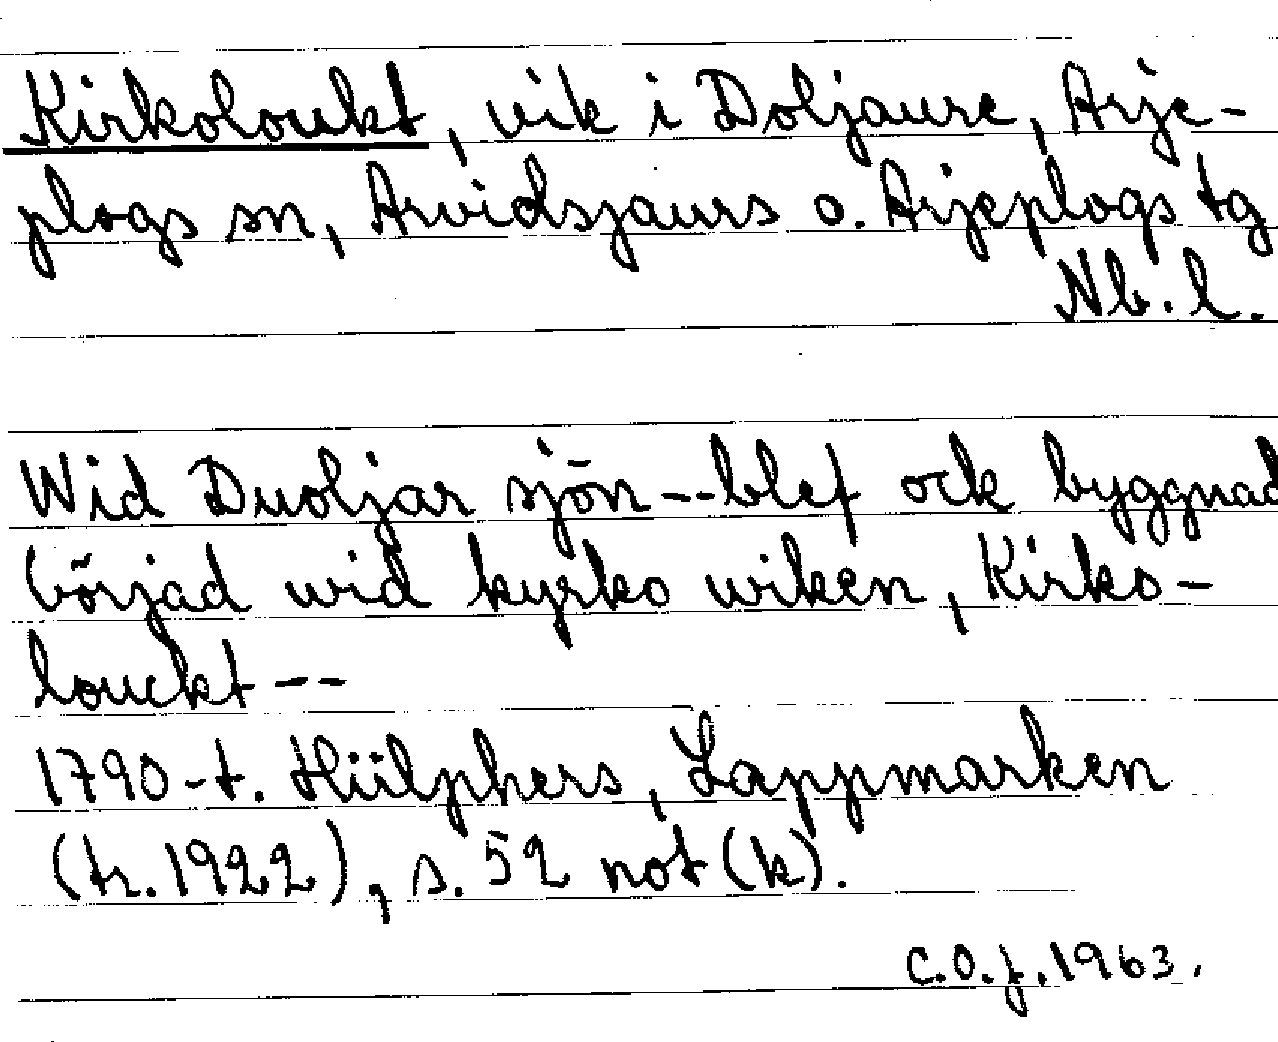 Kirkoloukt, vik i Doljaure, Arje-
plogs sn, Arvidsjaurs o. Arjeplogs tg
Nb. l.
Wid Duoljar sjön -- blef ock byggnad
börjad wid kyrko wiken, Kirko-
louckt --
1790-t. Hülphers, Lappmarken
(tr. 1922), s. 52 not (k).
C.O.J. 1963.